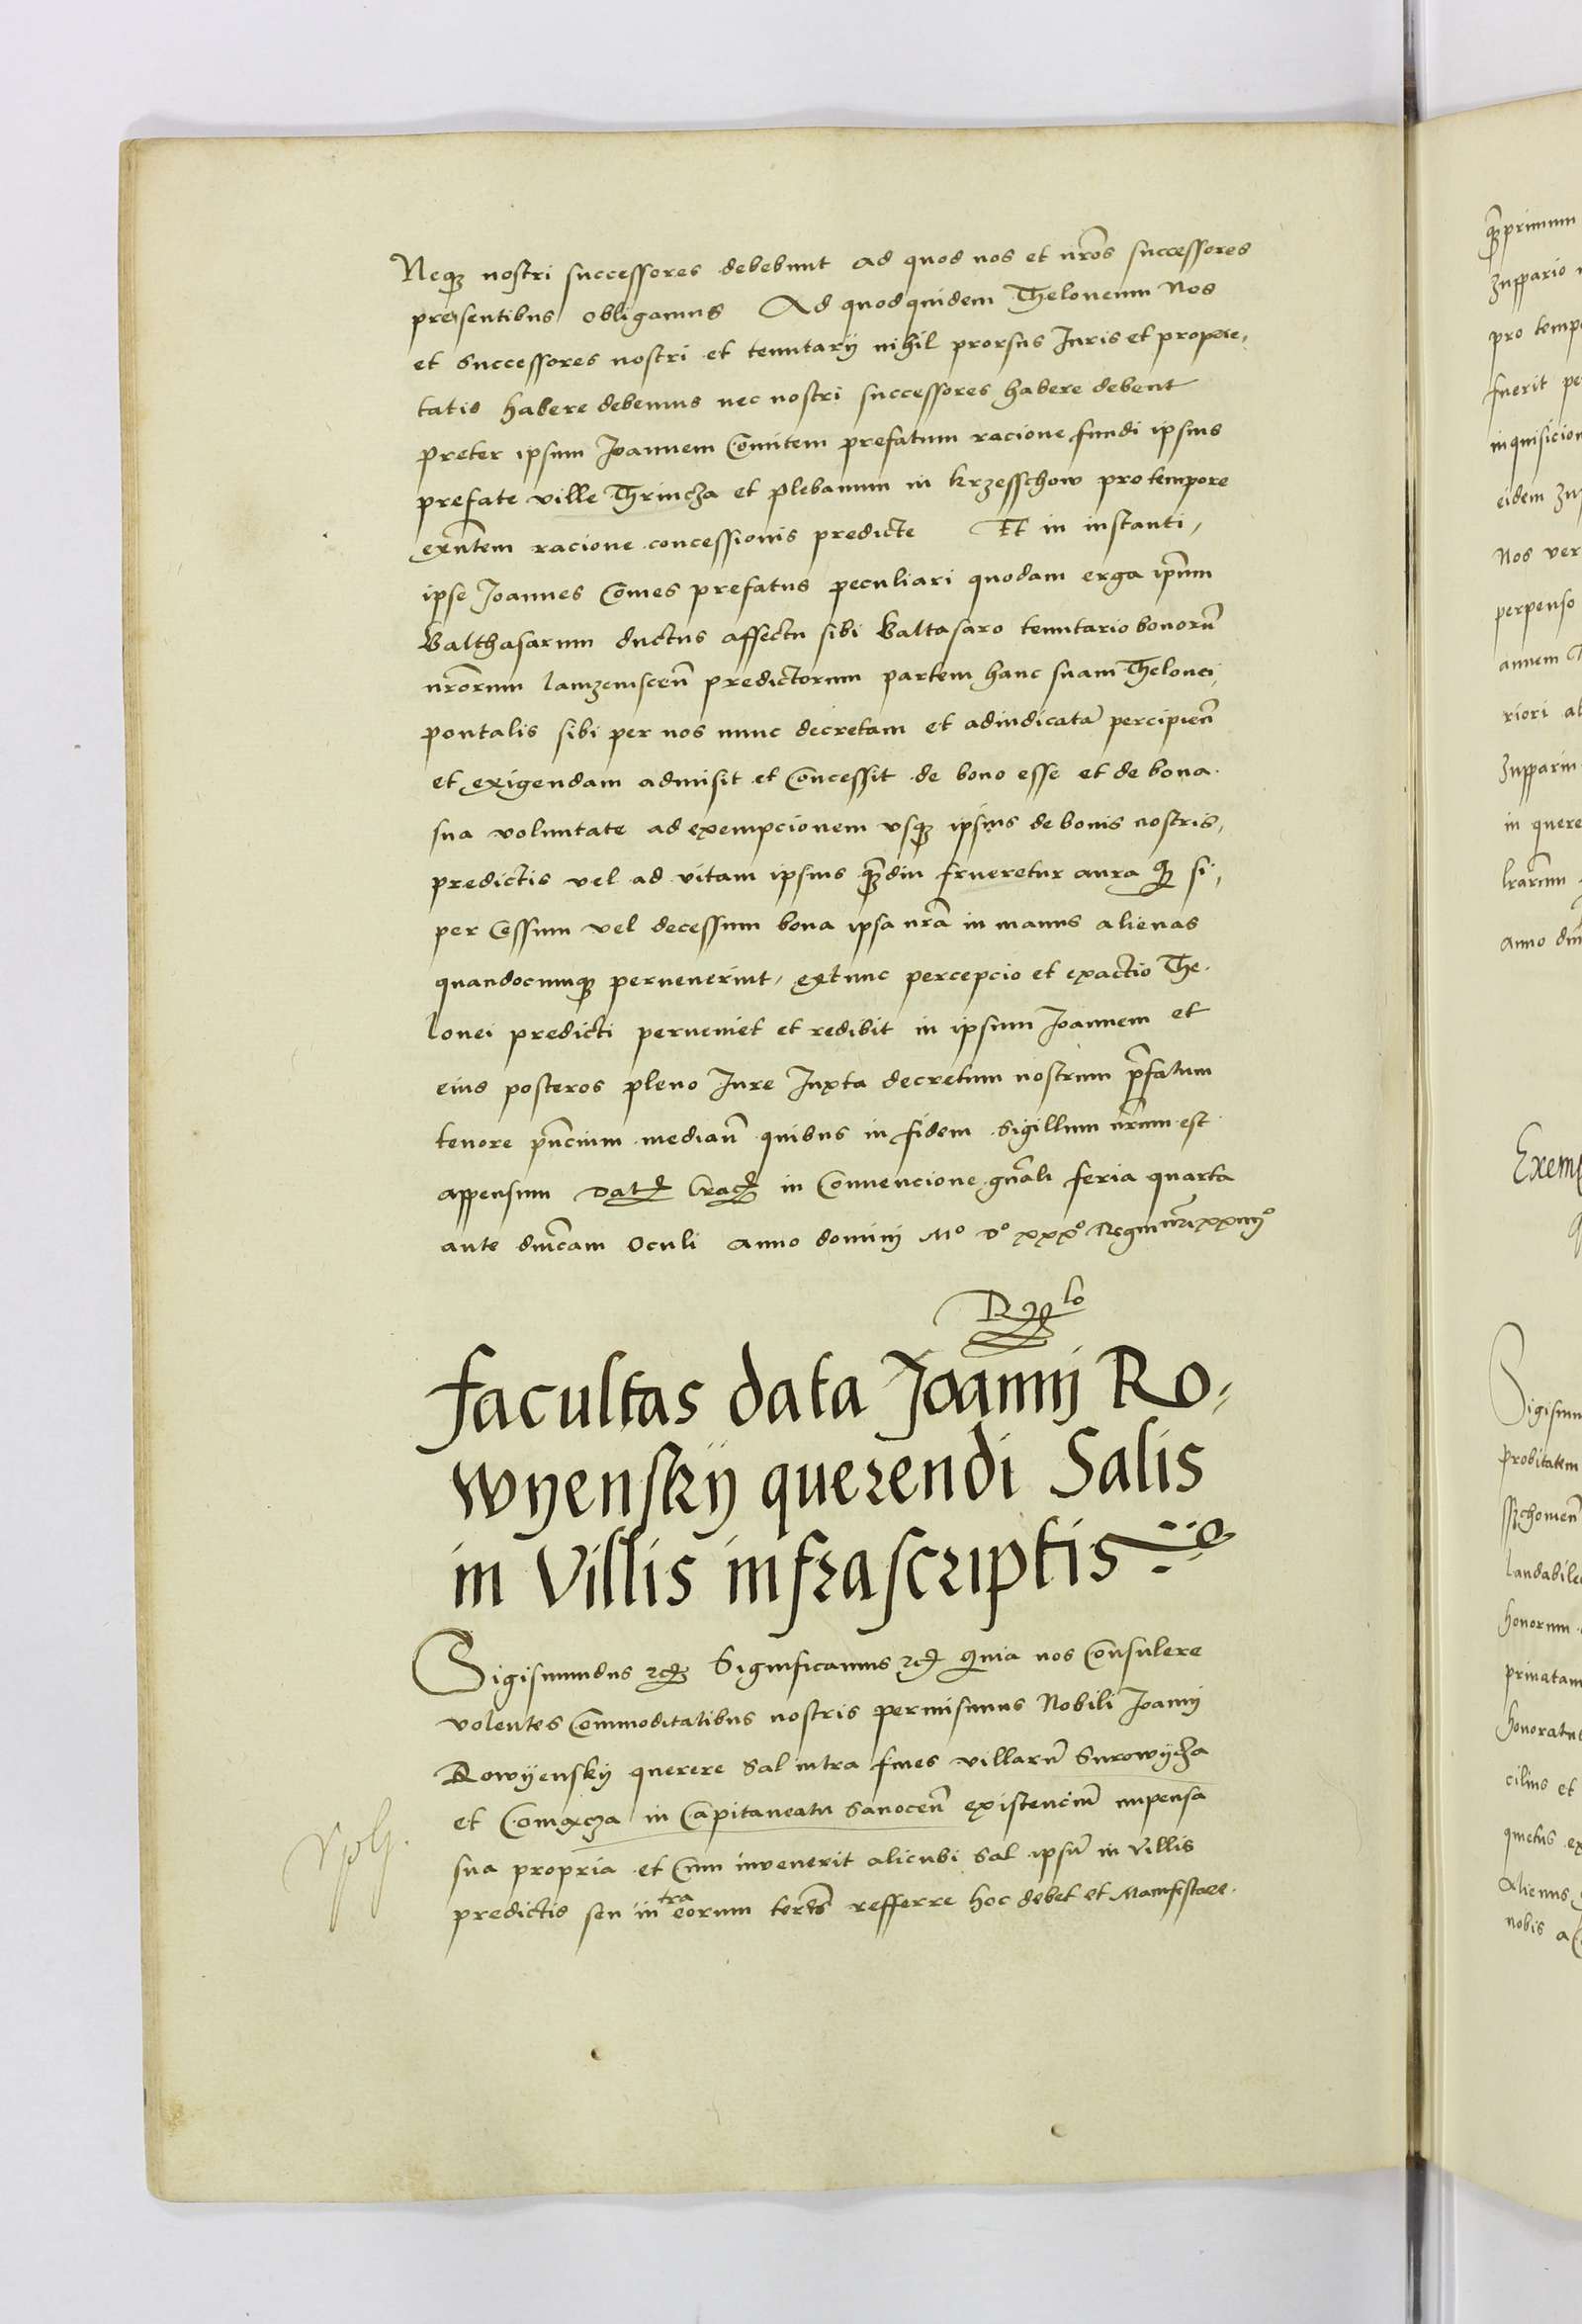 Neq3 nostri successores debebunt ad quod nos et nros successores
presentibus obligamus Ad quod quidem Theloneum Nos
et Successores nostri et tenutarij nihil prorsus Iuris et proprie,
tatis habere debemus nec nostri successores habere debent
preter ipsum Joannem Comitem prefatum racione fundi ipsius
prefate ville Thrincza et plebanum in krzesschow pro tempore
exntem racione concessionis predicte Et in instanti,
ipse Joannes Comes prefatus peculiari quodam erga ipsum
Balthasarum ductus affectu sibi Baltasaro tenutario bonorū
nrorum predictorum partem hanc suam Thelonei,
pontalis sibi per nos nunc decretam et adiudicatā percipien̄
et exigendam admisit et Concessit de bono esse et de bona
sua voluntate ad exempcionem vsq3 ipsius de bonis nostris,
predictis vel ad vitam ipsius q̄3diu frueretur aura q3 si,
per Cessum vel decessum bona ipsa nr̄a in manus alienas
quandocunq3 peruenerint, extunc percepcio et exactio The
lonei predicti perueniet et redibit in ipsum Joannem et
eius posteros pleno Iure Iuxta decretum nostrum pr̄fatum
tenore pn̄cium median̄ quibus in fidem Sigillum nrūm est
appensum Dat Crac in Conuencione gnāli feria quarta
ante dnicam Oculi Anno domini Mº Dº xxxº Regni nri xxiiijº
facultas data Joannij Ro,
wyenskij querendi Salis
in Villis infrascriptis
Sigismundus Significamus Quia nos Consulere
volentes Commoditatibus nostris permisimus Nobili Joannj
Rowyensky querere Sal intra fines villarū Surowycza
et Comancza in Capitaneatu Sanocen̄ existenciū impensa
sua propria et Cum invenerit alicubi Sal ipsū in Villis
predictis seu intra eorum refferre hoc debet et Manifestare
quāprimum
Zuppario
pro temp
fuerit pe
inquisicion
eidem Zup
Nos ver
perpenso
annem
riori al
Zupparin
in quere
Anno dni
Exem
Sigismu
probitatem
laudabile
honorum
priuatam
honoratu
cilius et
quetus ex
Alienus
nobis a